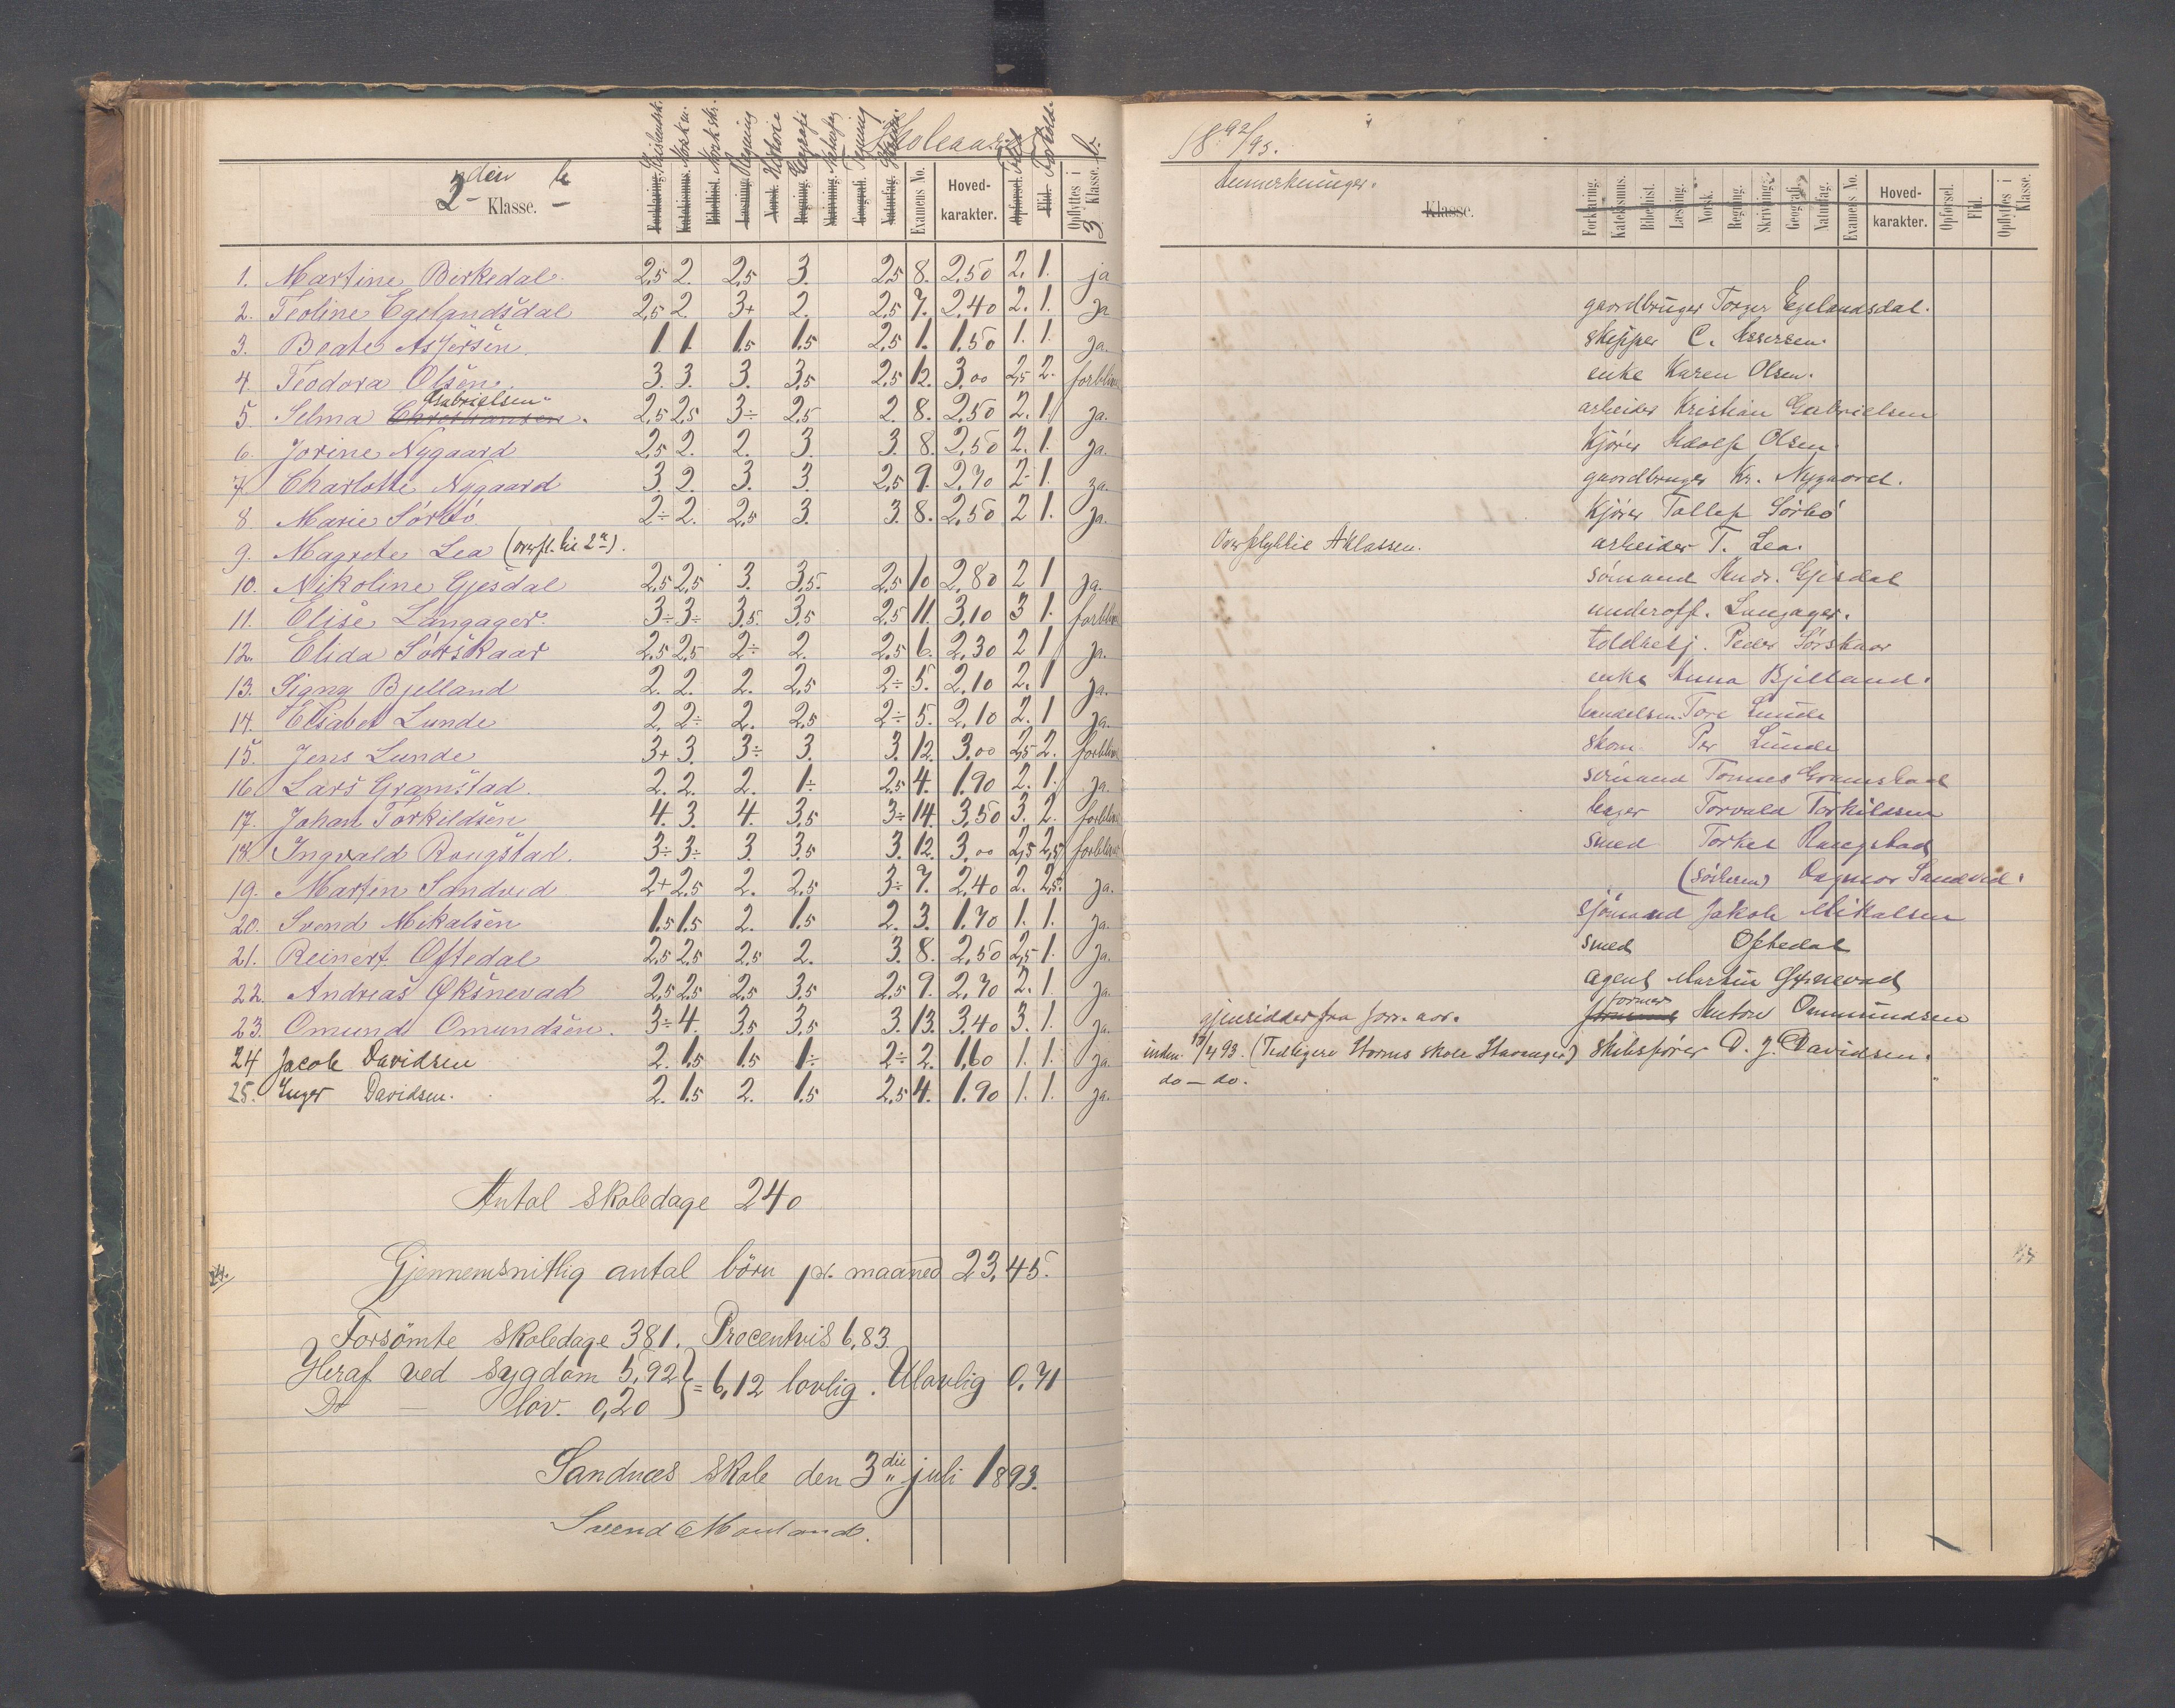 Skoleaaret 18 92/93.
2den b Klasse.
Kristendk. Norsk m. Norsk skr. Regning Historie Geografi Naturfag Tegning Skrivn. Examens No. Hoved-karakter. Flid Forhold. Opflyttes i 3 Klasse. b.
Anmerkninger.
Klasse.
Forklaring. Katekismus. Bibelhist. Læsning. Norsk. Regning. Skrivning. Geografi. Naturfag. Examens No. Hoved-karakter. Opførsel. Flid. Opflyttes i Klasse.
1. Martine Birkedal. 2,5 2. 2,5 3. 2,5 8. 2,50 2. 1. ja
2. Teoline Egelandsdal 2,5 2. 3+ 2. 2,5 7. 2,40 2. 1. Ja gaardbruger Torger Egelandsdal.
3. Beate Assersen. 1. 1. 1.5 1.5 2,5 1. 1.50 1. 1. Ja. Skipper C. Assersen.
4. Teodora Olsen. 3. 3. 3. 3,5 2,5 12. 3.00 2,5 2. forbliver enke Karen Olsen.
5. Selma Christiansen. Gabrielsen 2,5 2,5 3÷ 2,5 2. 8. 2,50 2. 1. Ja. arbeider Kristian Gabrielsen
6. Jorine Nygaard 2,5 2. 2. 3. 3. 8. 2,50 2. 1. Ja. Kjører Adolf Olsen
7. Charlotte Nygaard 3. 2. 3. 3. 2,5 9. 2,70 2. 1. Ja. gaardbruger Kr. Nygaard.
8. Marie Sørbø 2÷ 2. 2,5 3. 3. 8. 2,50 2 1. Ja. Kjører Tollef Sørbø
9. Magrete Lea (overfl. til 2a). Overflyttet A klassen. arbeider T. Lea.
10. Nikoline Gjesdal 2,5 2,5 3. 3,5. 2,5 10 2,80 2 1 Ja. sømand Andr. Gjesdal
11. Elise Langager. 3÷ 3÷ 3,5. 3,5 2,5 11. 3,10 3 1. forbliver underoff. Langager.
12. Elida Sørskaar 2,5 2,5 2÷ 2. 2,5 6. 2,30 2 1 Ja. toldbetj. Peder Sørskaar
13. Signy Bjelland 2. 2. 2. 2,5 2÷ 5. 2,10 2. 1 Ja. enke Anna Bjelland.
14. Elisabet Lunde 2. 2÷ 2. 2,5 2÷ 5. 2,10 2. 1 Ja. handelsm. Tore Lunde
15. Jens Lunde 3+ 3. 3÷ 3. 3. 12. 3.00 2,5 2. forbliver skom. Per Lunde
16. Lars Gramstad. 2. 2. 2. 1÷ 2,5 4. 1.90 2. 1. ja. sømand Tønnes Gramstad
17. Johan Torkildsen 4. 3. 4. 3,5 3÷ 14. 3,50 3. 2. forbliver bager Torvald Torkildsen
18. Ingvald Rougstad. 3÷ 3÷ 3 3,5 3. 12. 3.00 2,5 2,5 forbliver smed Torkel Raugstad
19. Martin Sandved 2+ 2,5 2. 2,5 3÷ 7. 2,40 2. 2,5. ja. (søsteren) Dagmar Sandved.
20. Svend Mikalsen 1.5 1.5 2. 1.5 2. 3. 1.70 1. 1. Ja. sjømand Jakob Mikalsen
21. Reinert Oftedal 2,5 2,5 2,5 2. 3. 8. 2,50 2,5 1. Ja. smed Oftedal
22. Andreas Øksnevad 2,5 2,5 2,5 3,5 2,5 9. 2,70 2. 1. Ja. agent Martin Øxnevad
23. Omund Omundsen. 3÷ 4. 3,5 3,5 3. 13. 3,40 3. 1. Ja. gjensidder fra forr. aar. former Anton Ommundsen
24 Jacob Davidsen 2. 1.5 1.5 1÷ 2÷ 2. 1,60 1. 1. Ja. indm. 17/4 93. (Tidligere Storms skole Stavanger) skibsfører D. J. Davidsen.
25. Inger Davidsen. 2. 1.5 2. 1.5 2,5 4. 1.90 1. 1. Ja. do — do. "
Antal skoledage 240
Gjennemsnitlig antal börn pr. maaned 23,45.
Forsömte skoledage 381. Procentvis 6,83.
Heraf ved sygdom 5,92 } = 6,12 lovlig. Ulovlig 0,71
Do — lov. 0,20
Sandnæs skole den 3die juli 1893.
Svend Mauland.